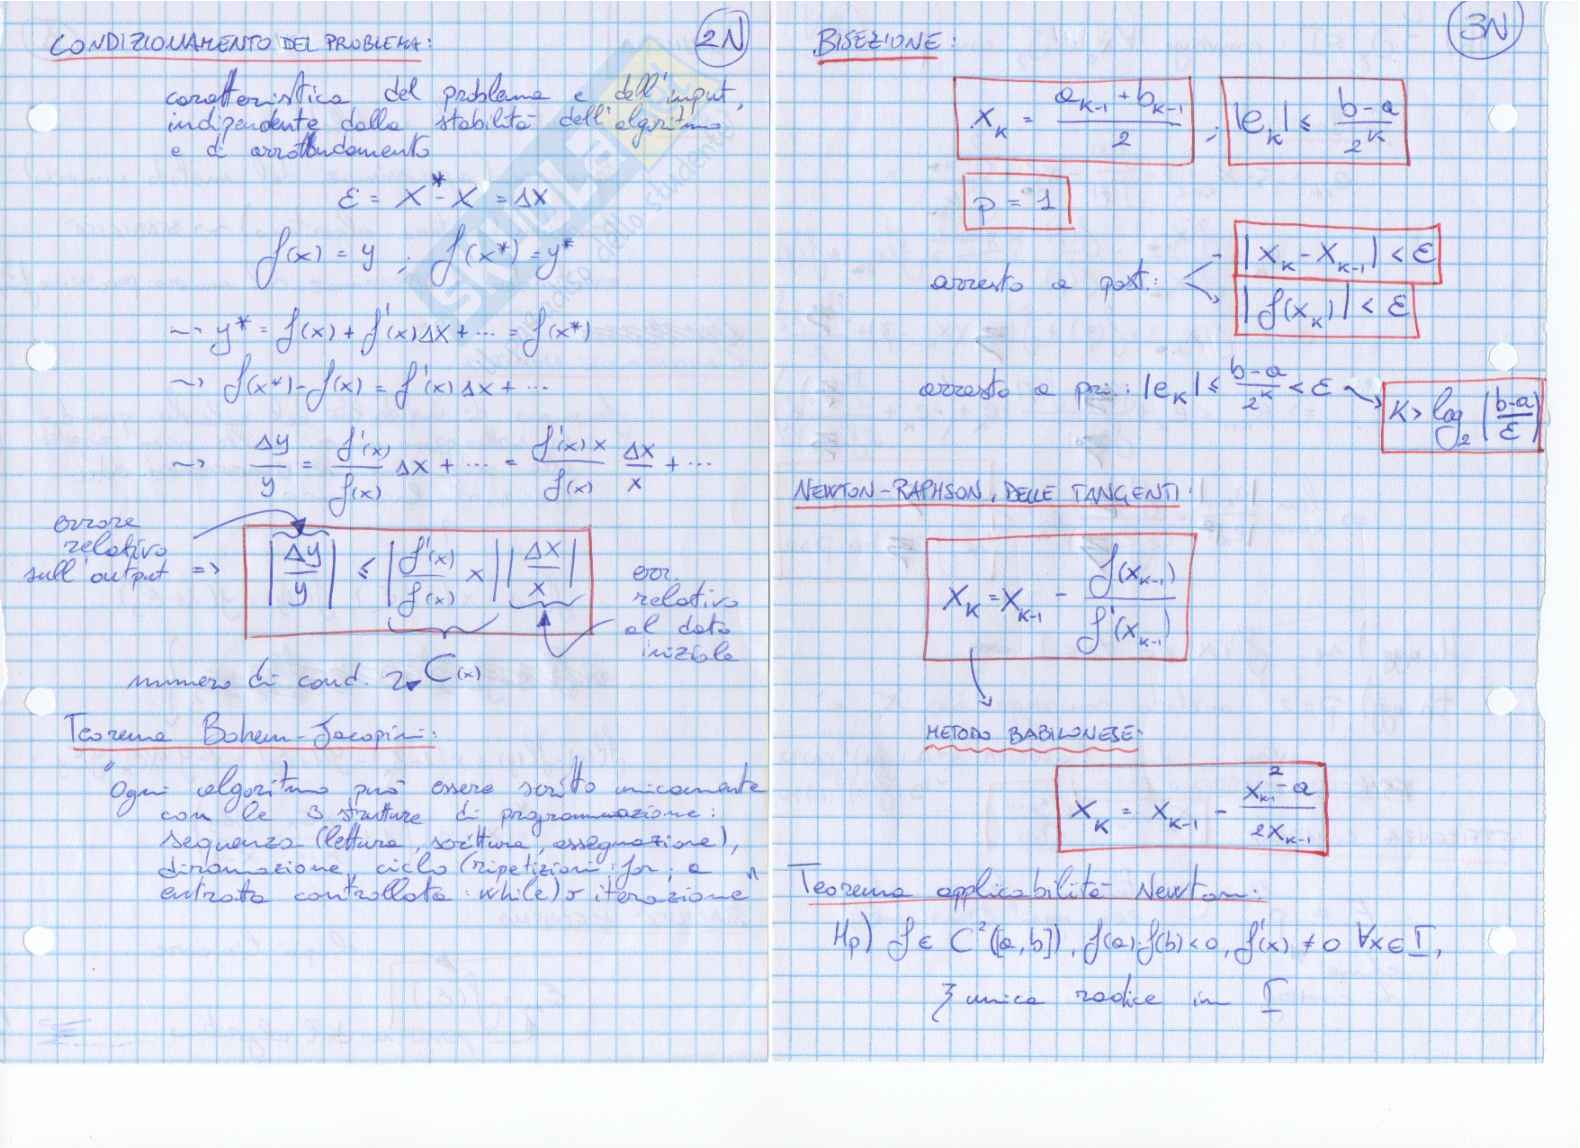 CONDIZIONAMENTO DEL PROBLEMA:
2N
caratteristica del problema e dell'input,
indipendente dalla stabilità dell'algoritmo
e di arrotondamento
ε = x* - x = Δx
f(x) = y ; f(x*) = y*
~> y* = f(x) + f'(x)Δx + ... = f(x*)
~> f(x*) - f(x) = f'(x)Δx + ...
~> Δy/y = f'(x)/f(x) Δx + ... = f'(x)x/f(x) Δx/x + ...
errore
relativo
sull'output => |Δy/y| ≤ |f'(x)/f(x) x| |Δx/x|
err.
relativo
al dato
iniziale
numero di cond. C(x)
Teorema Bohem-Jacopini:
"Ogni algoritmo può essere scritto unicamente
con le 3 strutture di programmazione:
sequenza (lettura, scrittura, assegnazione),
diramazione, ciclo (ripetizioni: for; a
entrata controllata: while) o iterazione"
3N
BISEZIONE:
x_k = (a_{k-1} + b_{k-1})/2 ; |e_k| ≤ (b-a)/2^k
p = 1
arresto a post.: |x_k - x_{k-1}| < ε
|f(x_k)| < ε
arresto a pri.: |e_k| ≤ (b-a)/2^k < ε ~> k > log_2((b-a)/ε)
NEWTON-RAPHSON, DELLE TANGENTI:
x_k = x_{k-1} - f(x_{k-1})/f'(x_{k-1})
METODO BABILONESE:
x_k = x_{k-1} - (x_{k-1}^2 - a)/(2x_{k-1})
Teorema applicabilità Newton:
Hp) f ∈ C^2([a,b]), f(a)·f(b)<0, f'(x) ≠ 0 ∀x∈I,
ξ unica radice in I
SKUOLA
dello studente